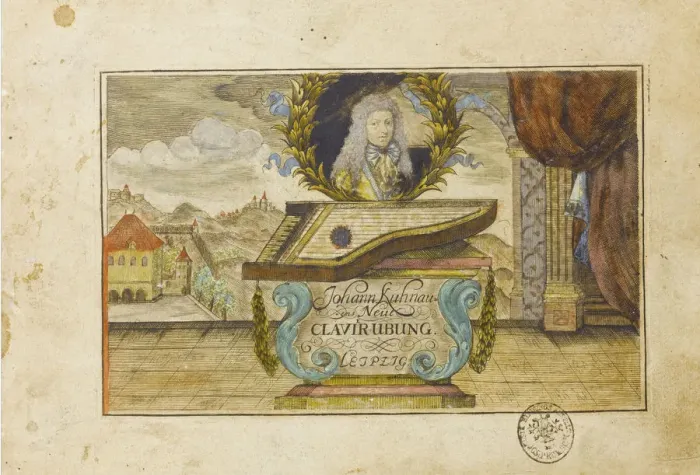 Johann Kuhnau
Neue
CLAVIR UBUNG.
LEIPZIG